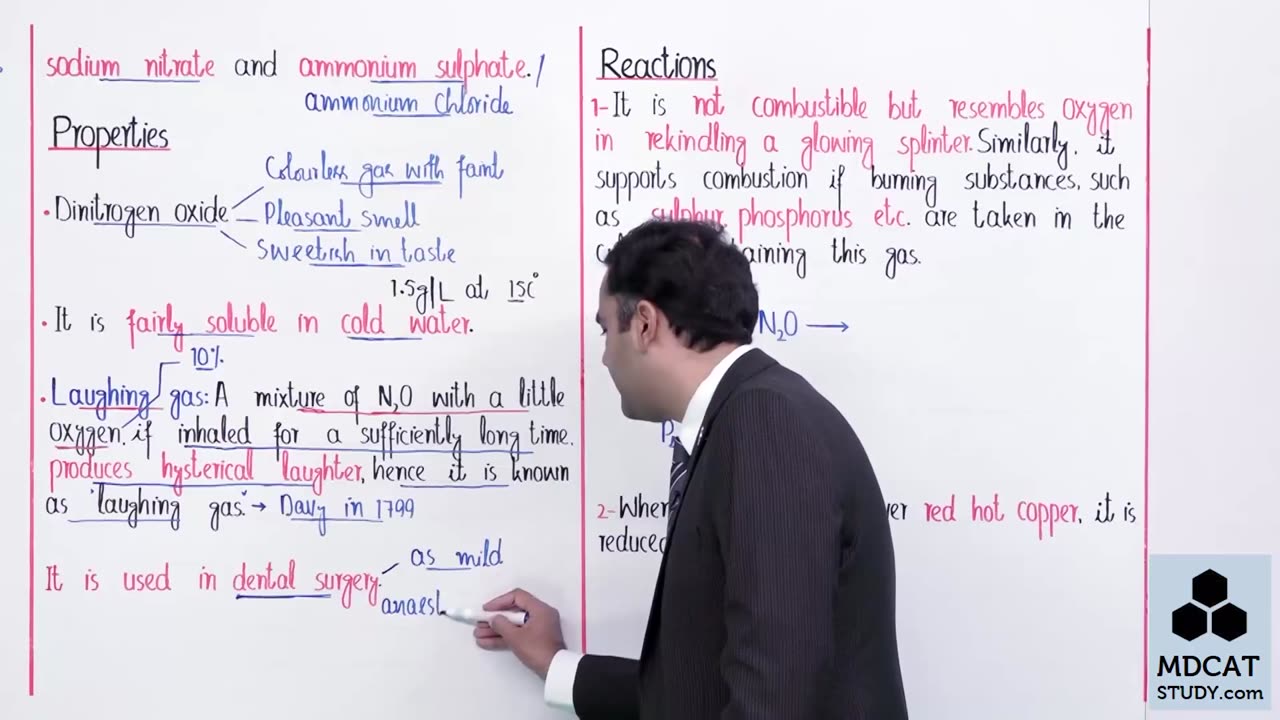 sodium nitrate and ammonium sulphate./
ammonium chloride
Properties
Colourless gas with faint
• Dinitrogen oxide
Pleasant smell
Sweetish in taste
1.5g/L at 15C°
• It is fairly soluble in cold water.
10%
• Laughing gas: A mixture of N2O with a little
oxygen, if inhaled for a sufficiently long time.
produces hysterical laughter, hence it is known
as 'laughing gas.' → Davy in 1799
as mild
It is used in dental surgery.
Reactions
1- It is not combustible but resembles oxygen
in rekindling a glowing splinter. Similarly, it
supports combustion if burning substances, such
as sulphur, phosphorus etc. are taken in the
this gas.
N2O →
2- When red hot copper, it is
reduced
MDCAT
STUDY.com